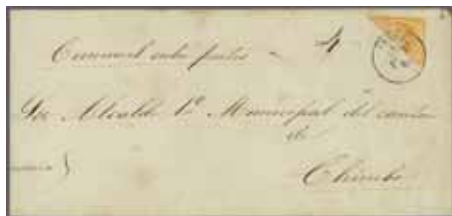 Criminal entre partes — 4
Sor Alcalde 1º Municipal del canton
de
Chimbo